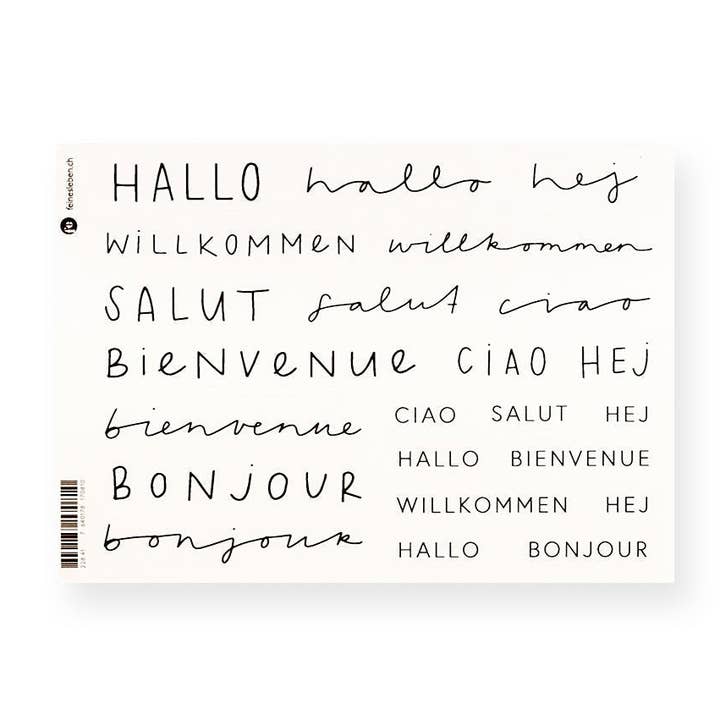 feinesleben.ch
HALLO hallo hej
WiLLKOMMEN willkommen
SALUT salut ciao
BieNVeNUe CiAO HEj
bienvenue
CIAO SALUT HEJ
HALLO BIENVENUE
BONjOUR
WILLKOMMEN HEJ
bonjour
HALLO BONJOUR